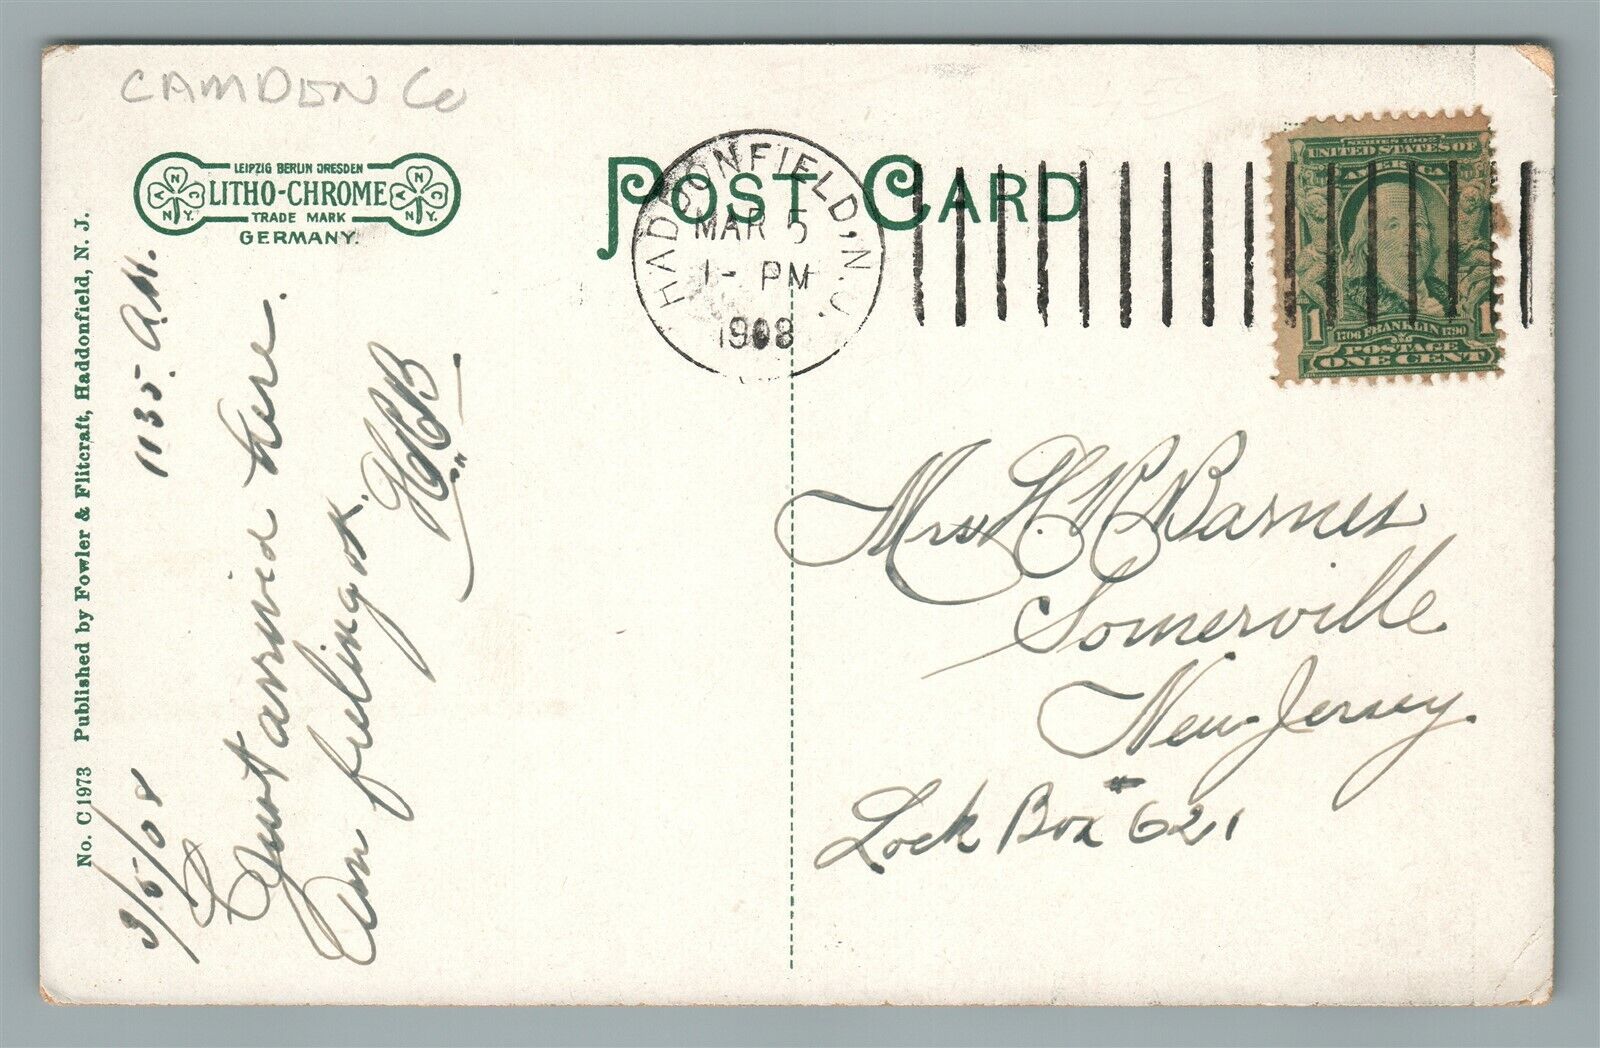 CAMDEN Co
LEIPZIG BERLIN DRESDEN
LITHO-CHROME
TRADE MARK
GERMANY.
N.Y.
N.Y.
POST CARD
HADDONFIELD, N.J.
MAR 5
1- PM
1908
SERIES 1902
UNITED STATES OF
AMERICA
1706 FRANKLIN 1790
1 1
POSTAGE
ONE CENT
No. C 1973 Published by Fowler & Flitcraft, Haddonfield, N. J.
3/5/08 1135. A.M.
Just arrived here.
Am feeling ok.
HCB
Mrs H. Barnes
Somerville
New Jersey.
Lock Box # 621